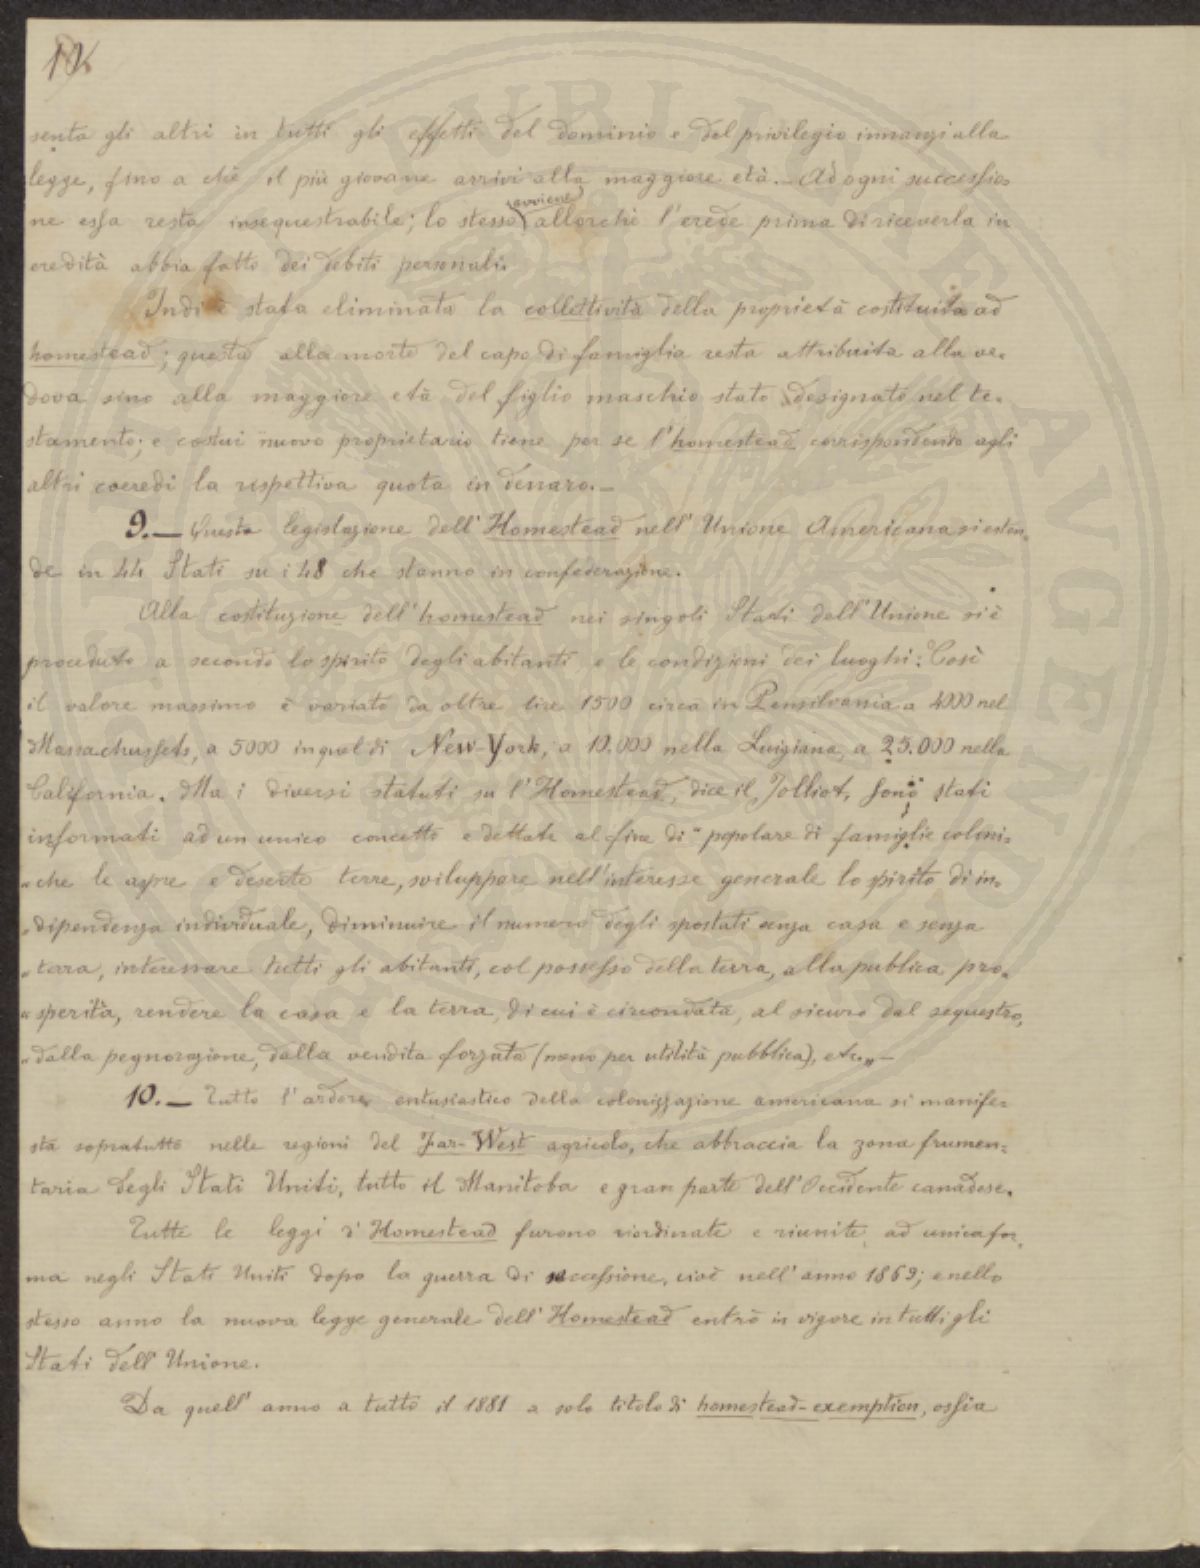 senta gli altri in tutti gli effetti del dominio e del privilegio innanzi alla
legge, fino a chè il più giovane arrivi alla maggiore età. — Ad ogni successio=
ne essa resta insequestrabile; lo stesso avviene allorchè l'erede prima di riceverla in
eredità abbia fatto dei debiti personali.
Indi è stata eliminata la collettività della proprietà costituita ad
homestead; questa alla morte del capo di famiglia resta attribuita alla ve=
dova sino alla maggiore età del figlio maschio stato designato nel te=
stamento; e costui nuovo proprietario tiene per se l'homestead corrispondendo agli
altri coeredi la rispettiva quota in denaro. —
9. — Questa legislazione dell'Homestead nell'Unione Americana si esten=
de in 44 Stati su i 48 che stanno in confederazione.
Alla costituzione dell'homestead nei singoli Stati dell'Unione si è
proceduto a secondo lo spirito degli abitanti e le condizioni dei luoghi: Così
il valore massimo è variato da oltre lire 1500 circa in Pensilvania a 4000 nel
Massachussets, a 5000 in quel di New-York, a 10.000 nella Luigiana, a 25.000 nella
California. Ma i diversi statuti su l'Homestead, dice il Jolliot, sono stati
informati ad un unico concetto e dettati al fine di "popolare di famiglie coloni=
"che le aspre e deserte terre, sviluppare nell'interesse generale lo spirito di in=
"dipendenza individuale, diminuire il numero degli spostati senza casa e senza
"terra, interessare tutti gli abitanti, col possesso della terra, alla publica pro=
"sperità, rendere la casa e la terra, di cui è circondata, al sicuro dal sequestro,
"dalla pegnorazione, dalla vendita forzata (meno per utilità pubblica), etc." —
10. — Tutto l'ardore entusiastico della colonizzazione americana si manife=
sta sopratutto nelle regioni del Far-West agricolo, che abbraccia la zona frumen=
taria degli Stati Uniti, tutto il Manitoba e gran parte dell'Occidente canadese.
Tutte le leggi d'Homestead furono riordinate e riunite ad unica for=
ma negli Stati Uniti dopo la guerra di secessione, cioè nell'anno 1869; e nello
stesso anno la nuova legge generale dell'Homestead entrò in vigore in tutti gli
Stati dell'Unione.
Da quell'anno a tutto il 1881 a solo titolo di homestead-exemption, ossia